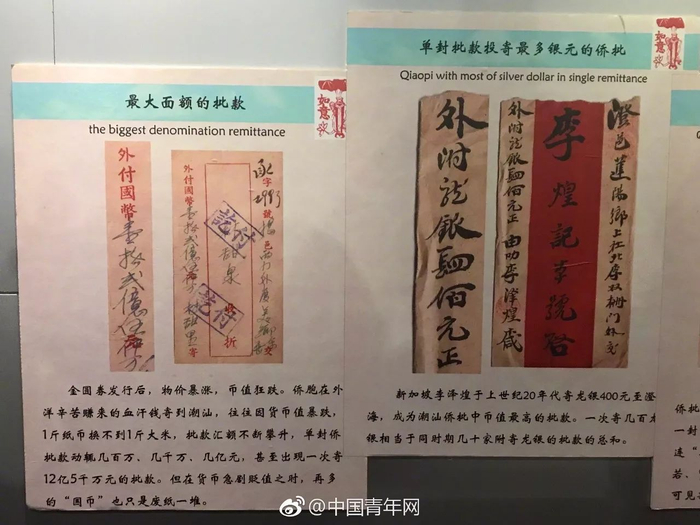 最大面额的批款
the biggest denomination remittance
如意
外付國幣壹拾弍億伍仟
外付國幣壹拾弍億伍仟
字
號
折
付訖
金圆券发行后，物价暴涨，币值狂跌。侨胞在外
洋辛苦赚来的血汗钱寄到潮汕，往往因货币值暴跌，
1斤纸币换不到1斤大米，批款汇额不断攀升，单封侨
批款动辄几百万、几千万、几亿元，甚至出现一次寄
12亿5千万元的批款。但在货币急剧贬值之时，再多
的“国币”也只是废纸一堆。
单封批款投寄最多银元的侨批
Qiaopi with most of silver dollar in single remittance
如意
外附龍銀肆佰元正
澄邑蓮陽鄉上社北房双柵门妝交
李煌記寶號啟
外附龍銀肆佰元正
由叻李澤煌緘
新加坡李泽煌于上世纪20年代寄龙银400元至澄
海，成为潮汕侨批中币值最高的批款。一次寄几百龙
银相当于同时期几十家附寄龙银的批款的总和。
一封
连“
若、
可见
@中国青年网